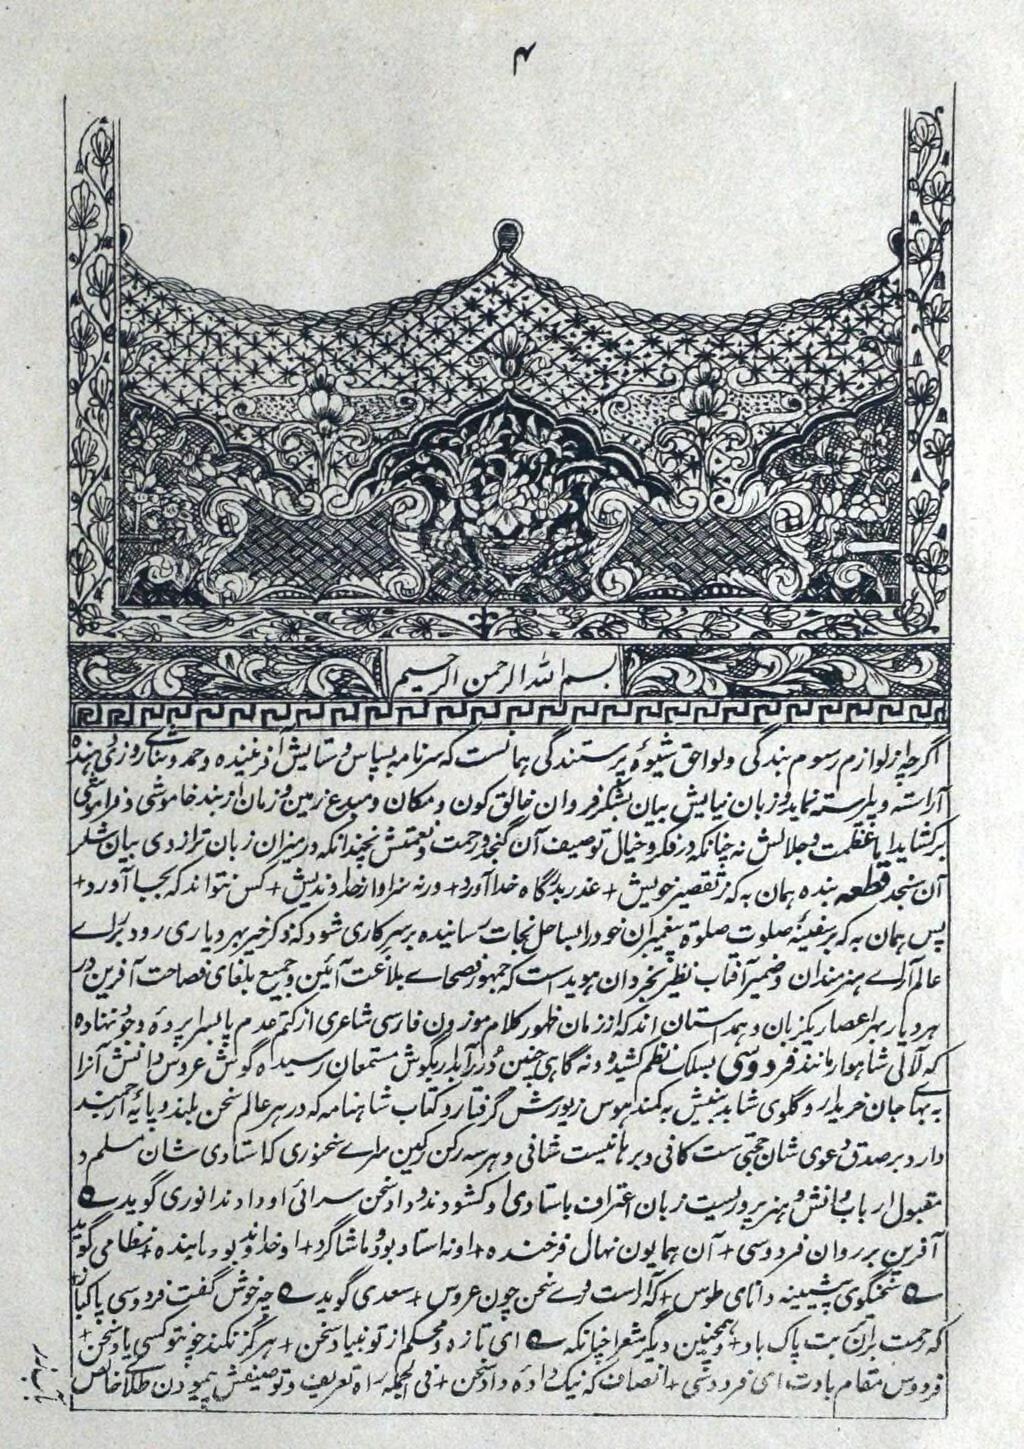 ۴
بسم الله الرحمن الرحیم
اگرچه از لوازم رسوم بندگی و لواحق شیوه پرستندگی همانست که سرنامه بسپاس و ستایش آفریننده و حمد و ثنای روزی دهنده
آراسته و پیراسته نماید و زبان نیایش بیان بشکر فروان خالق کون و مکان و مبدع زمین و زمان از بند خاموشی و فراموشی
برکشاید اما عظمت و جلالش نه چنانکه در فکر و خیال توصیف آن گنجد و رحمت و نعمتش نچندانکه در میزان زبان ترازوی بیان شکر
آن سنجد قطعه بنده همان به که ز تقصیر خویش + عذر بدرگاه خدا آورد + ورنه سزاوار خداوندیش + کس نتواند که بجا آورد +
پس همان به که بر سفینهٔ صلوت صلوة پیغمبران خود را بساحل نجات رسانیده بر سر کاری شود که ذکر خیر بهر دیاری رود برای
عالم آرای هنرمندان و ضمیر آفتاب نظیر بخردان هویداست که جمهور فصحای بلاغت آئین و جمیع بلغای فصاحت آفرین در
هر دیار بهر اعصار یکزبان و همداستان اند که از زمان ظهور کلام موزون فارسی شاعری از کتم عدم پا بسراپرده وجود ننهاده
که لآلی شاهوار مانند فردوسی بسلک نظم کشیده و نه گاهی چنین دُرر آبدار بگوش مستمعان رسیده گوش عروس دانش آنرا
به بهای جان خریدار و گلوی شاهد بینش به کمند هوس زیورش گرفتار و کتاب شاهنامه که در هر عالم سخن بلند و پایهٔ ارجمند
دارد بر صدق دعوی شان حجتی ست کافی و برهانیست شافی و هر سه رکن رکین سرای سخنوری که استادی شان مسلم و
مقبول ارباب دانش و هنرپروریست زبان اعتراف باستادی او کشودند و داد سخن سرائی او دادند انوری گوید
آفرین بر روان فردوسی + آن همایون نهال فرخنده + او نه استاد بود و ما شاگرد + او خداوند بود و ما بنده + نظامی گوید
سخنگوی پیشینه دانای طوس + که آراست روی سخن چون عروس + سعدی گوید چه خوش گفت فردوسی پاکزاد
که رحمت بران تربت پاک باد + و همچنین دیگر شعرا چنانکه ای تازه و محکم از تو بنیاد سخن + هرگز نکند چو تو کسی یاد سخن +
فردوس مقام بادت ای فردوسی + انصاف که نیک دادهٔ داد سخن + فی الجمله راه تعریف و توصیفش پیمودن